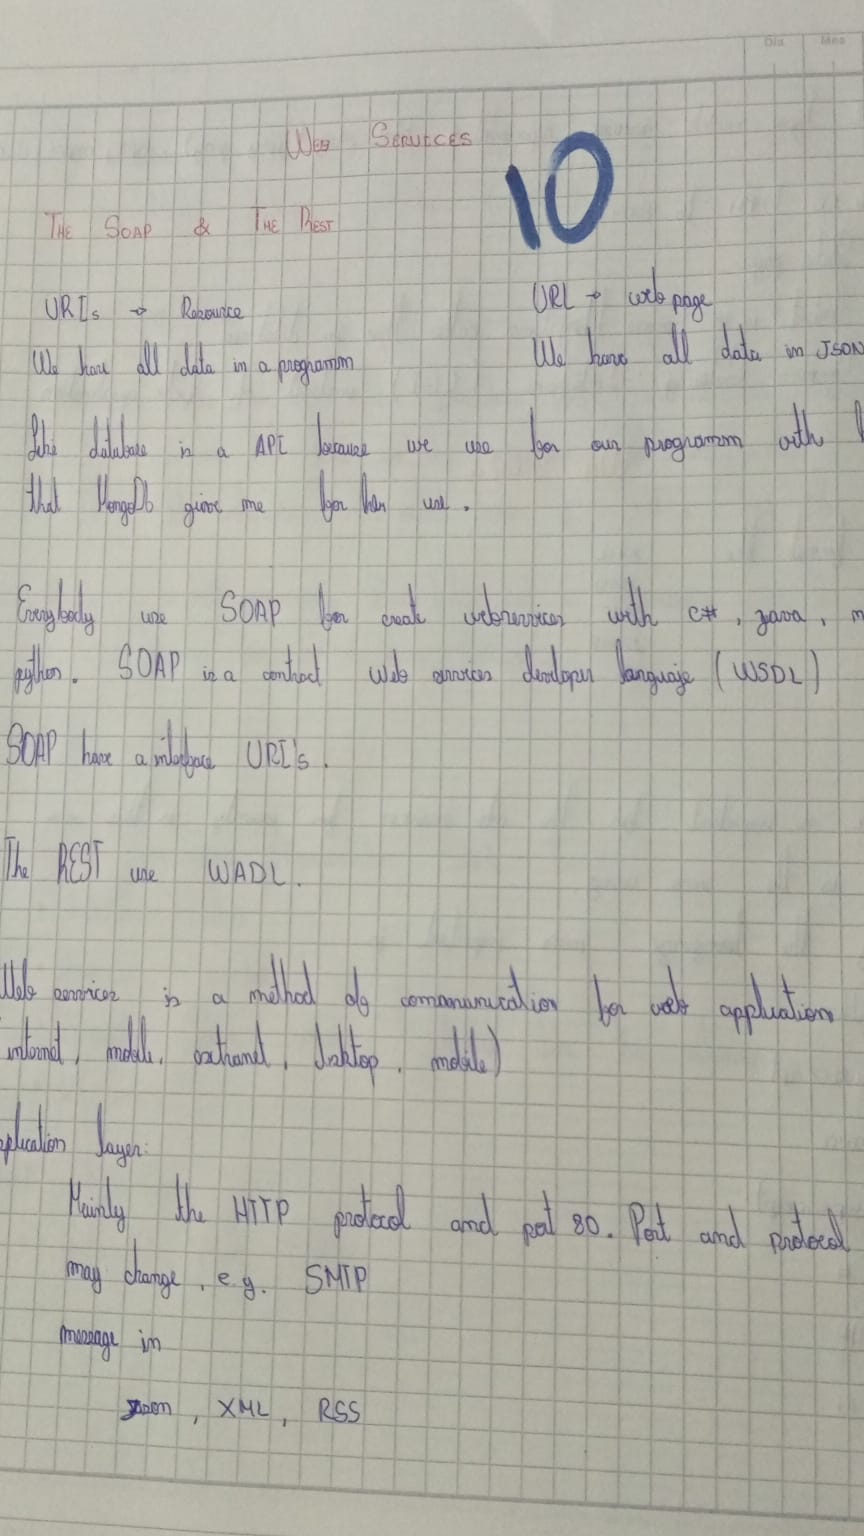 Día Mes
WEB SERVICES
10
THE SOAP & THE REST
URIs → Resource
URL → web page
We have all data in a programm
We have all data in JSON
database is a API because we use for our programm with
that MongoDb give me for her use.
Everybody use SOAP for create webservices with c#, java,
python. SOAP is a contract web services developer languaje (WSDL)
SOAP have a interface URI's.
The REST use WADL.
Web services is a method of communication for web application
internet, mobile, extranet, desktop, mobile)
plication layer:
Mainly the HTTP protocol and port 80. Port and protocol
may change, e.g. SMTP
message in
json, XML, RSS